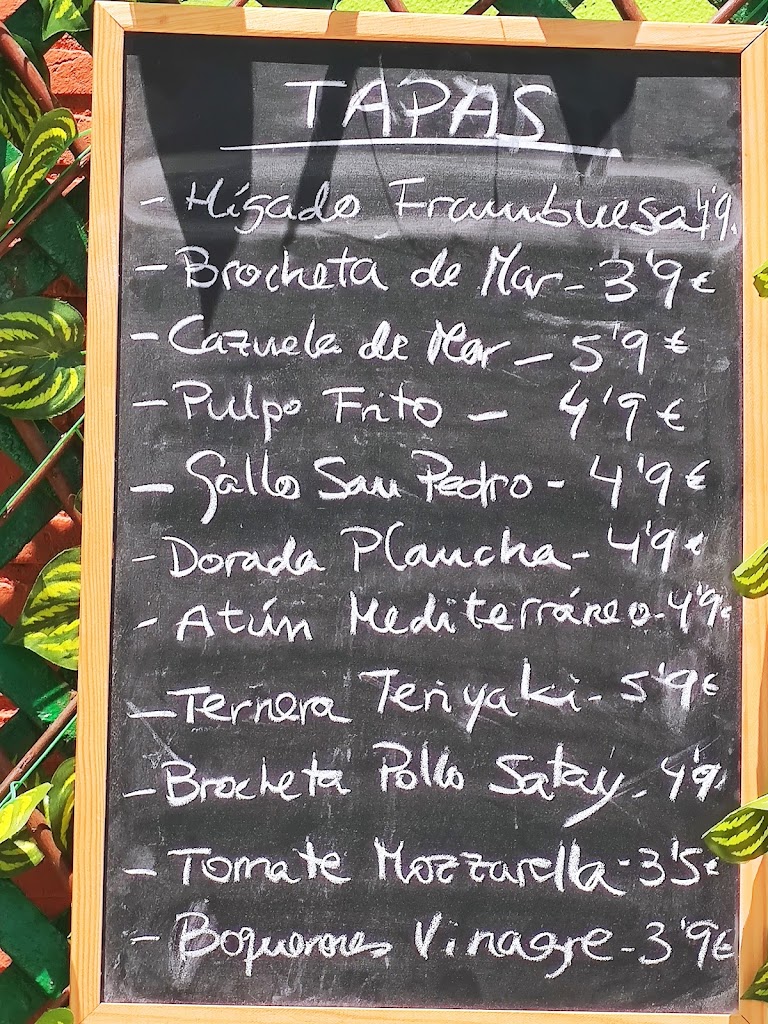 TAPAS
- Hígado Frambuesa 4'9.
- Brocheta de Mar - 3'9 €
- Cazuela de Mar - 5'9 €
- Pulpo Frito - 4'9 €
- Gallo San Pedro - 4'9 €
- Dorada Plancha - 4'9 €
- Atún Mediterráneo - 4'9 €
- Ternera Teriyaki - 5'9 €
- Brocheta Pollo Satay - 4'9.
- Tomate Mozzarella - 3'5 €
- Boquerones Vinagre - 3'9 €